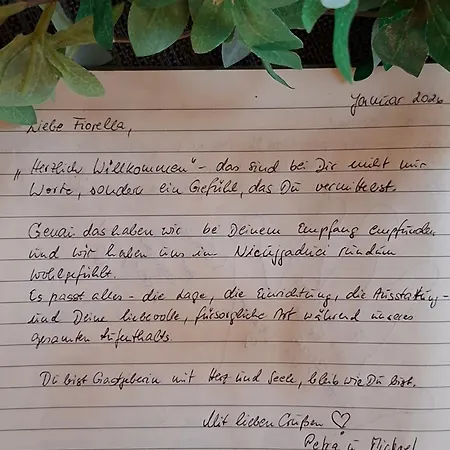 Januar 2026
Liebe Fiorella,
„Herzlich Willkommen" - das sind bei Dir nicht nur
Worte, sondern ein Gefühl, das Du vermittelst.
Genau das haben wir bei Deinem Empfang empfunden
und wir haben uns im rundum
wohlgefühlt.
Es passt alles - die Lage, die Einrichtung, die Ausstattung -
und Deine liebevolle, fürsorgliche Art während unseres
gesamten Aufenthalts.
Du bist Gastgeberin mit Herz und Seele, bleib wie Du bist.
Mit lieben Grüßen ♡
Petra u. Michael